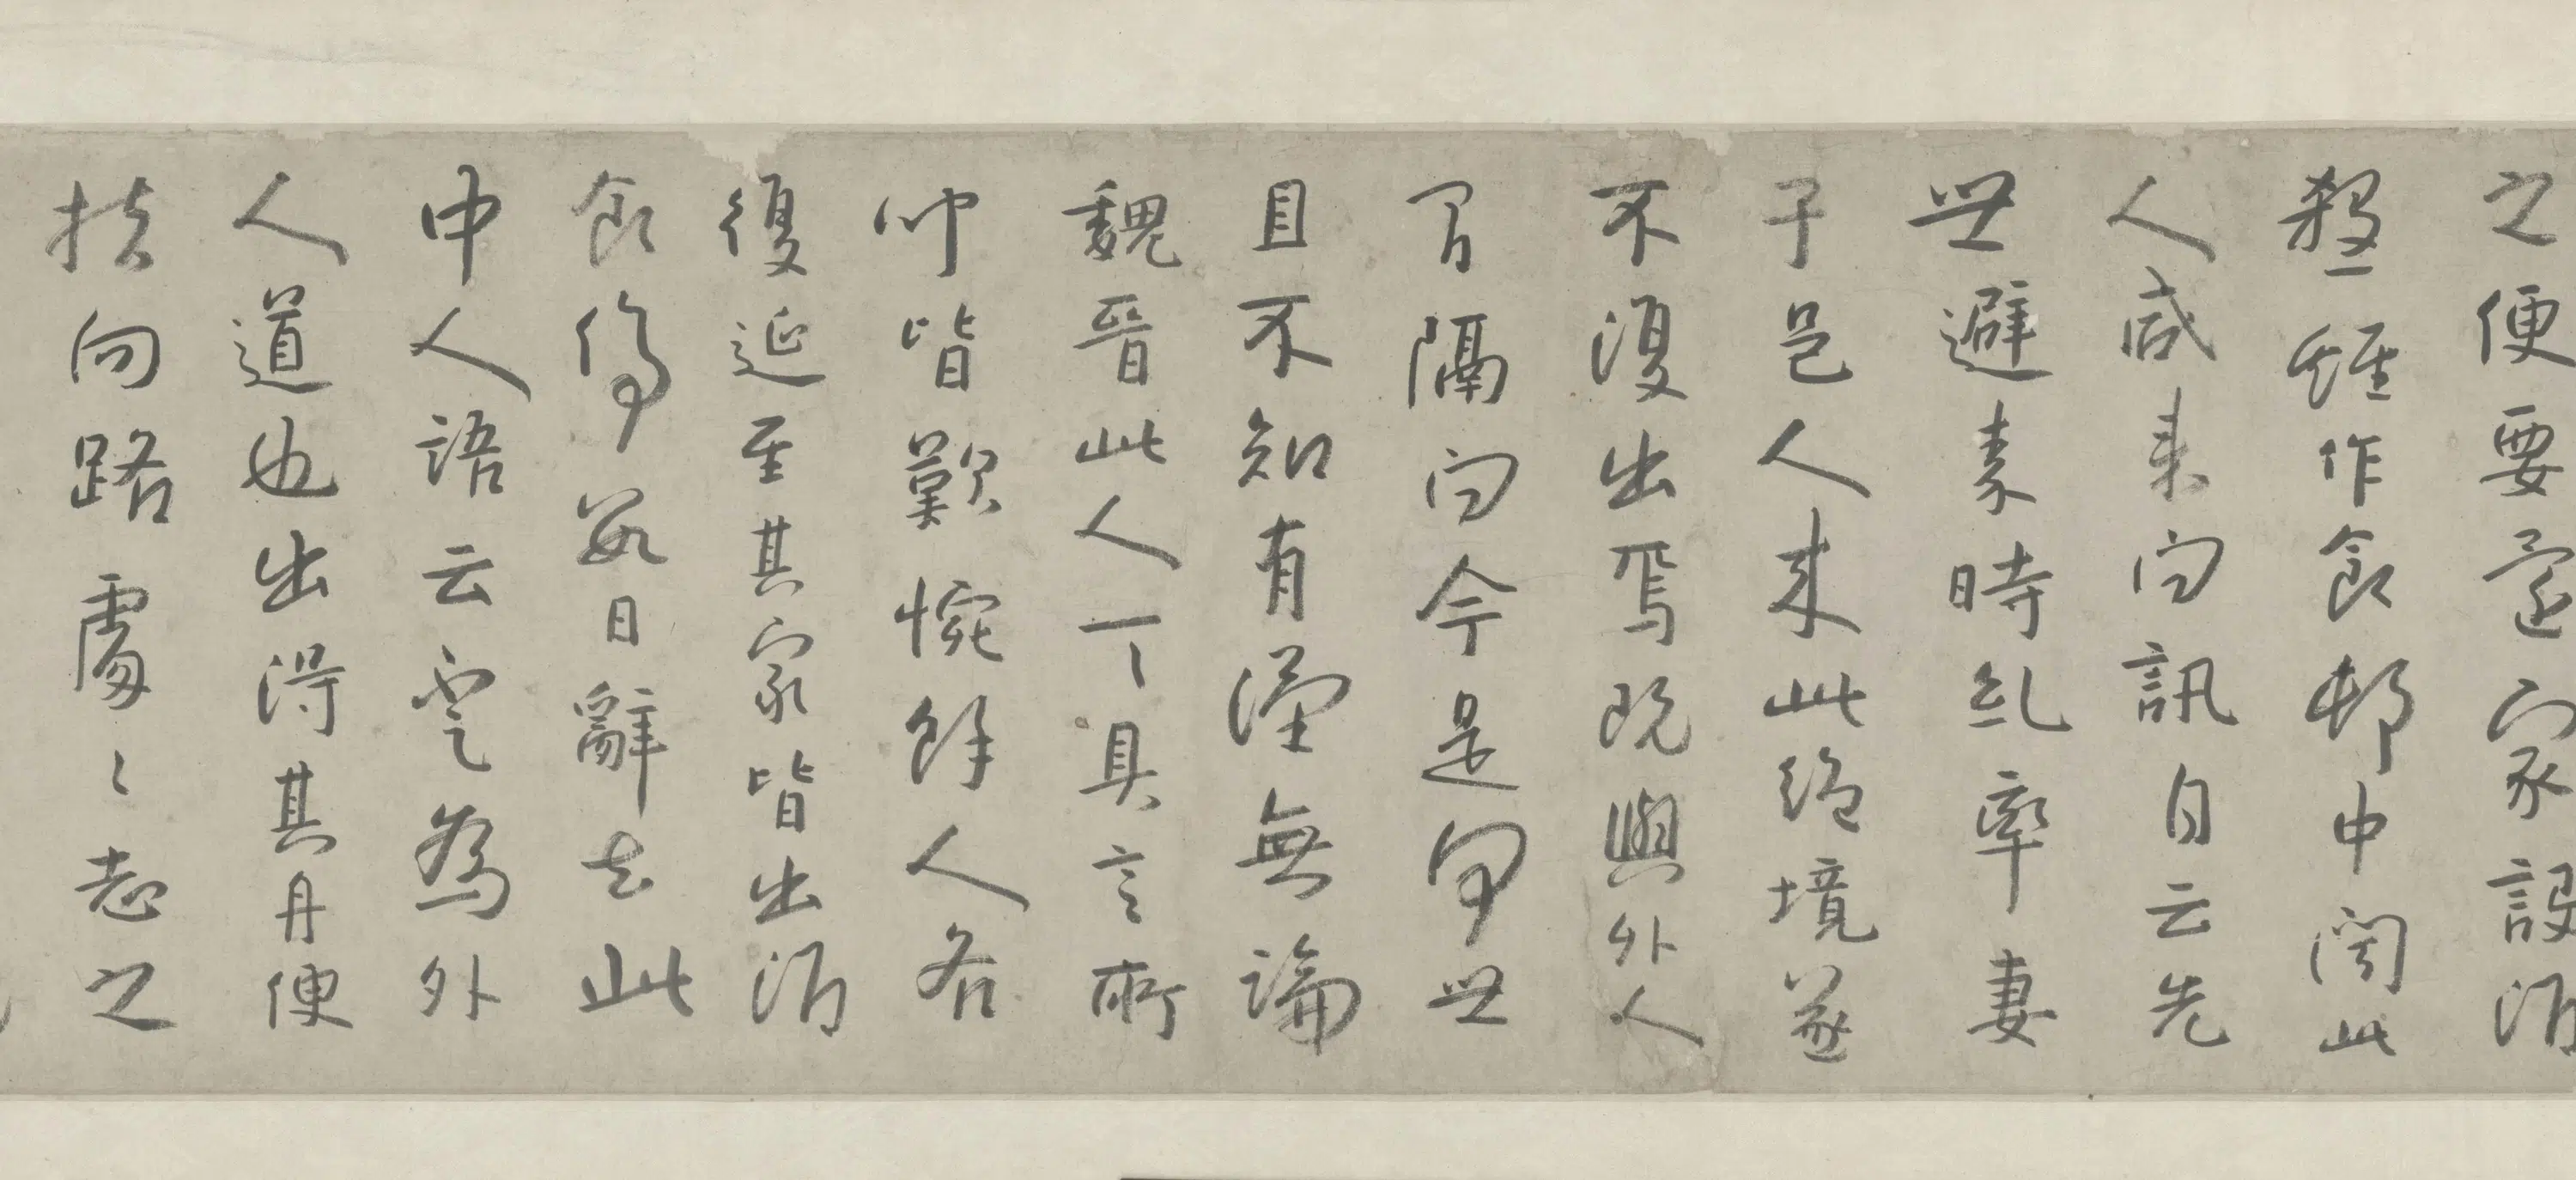 之便要還家設酒
殺雞作食邨中聞此
人咸来問訊自云先
世避秦時乱率妻
子邑人来此絶境遂
不復出焉既與外人
間隔問今是何世
且不知有漢無論
魏晉此人一〻具言所
聞皆歎惋餘人各
復延至其家皆出酒
食停數日辭去此
中人語云不足為外
人道也出得其舟便
扶向路處〻志之